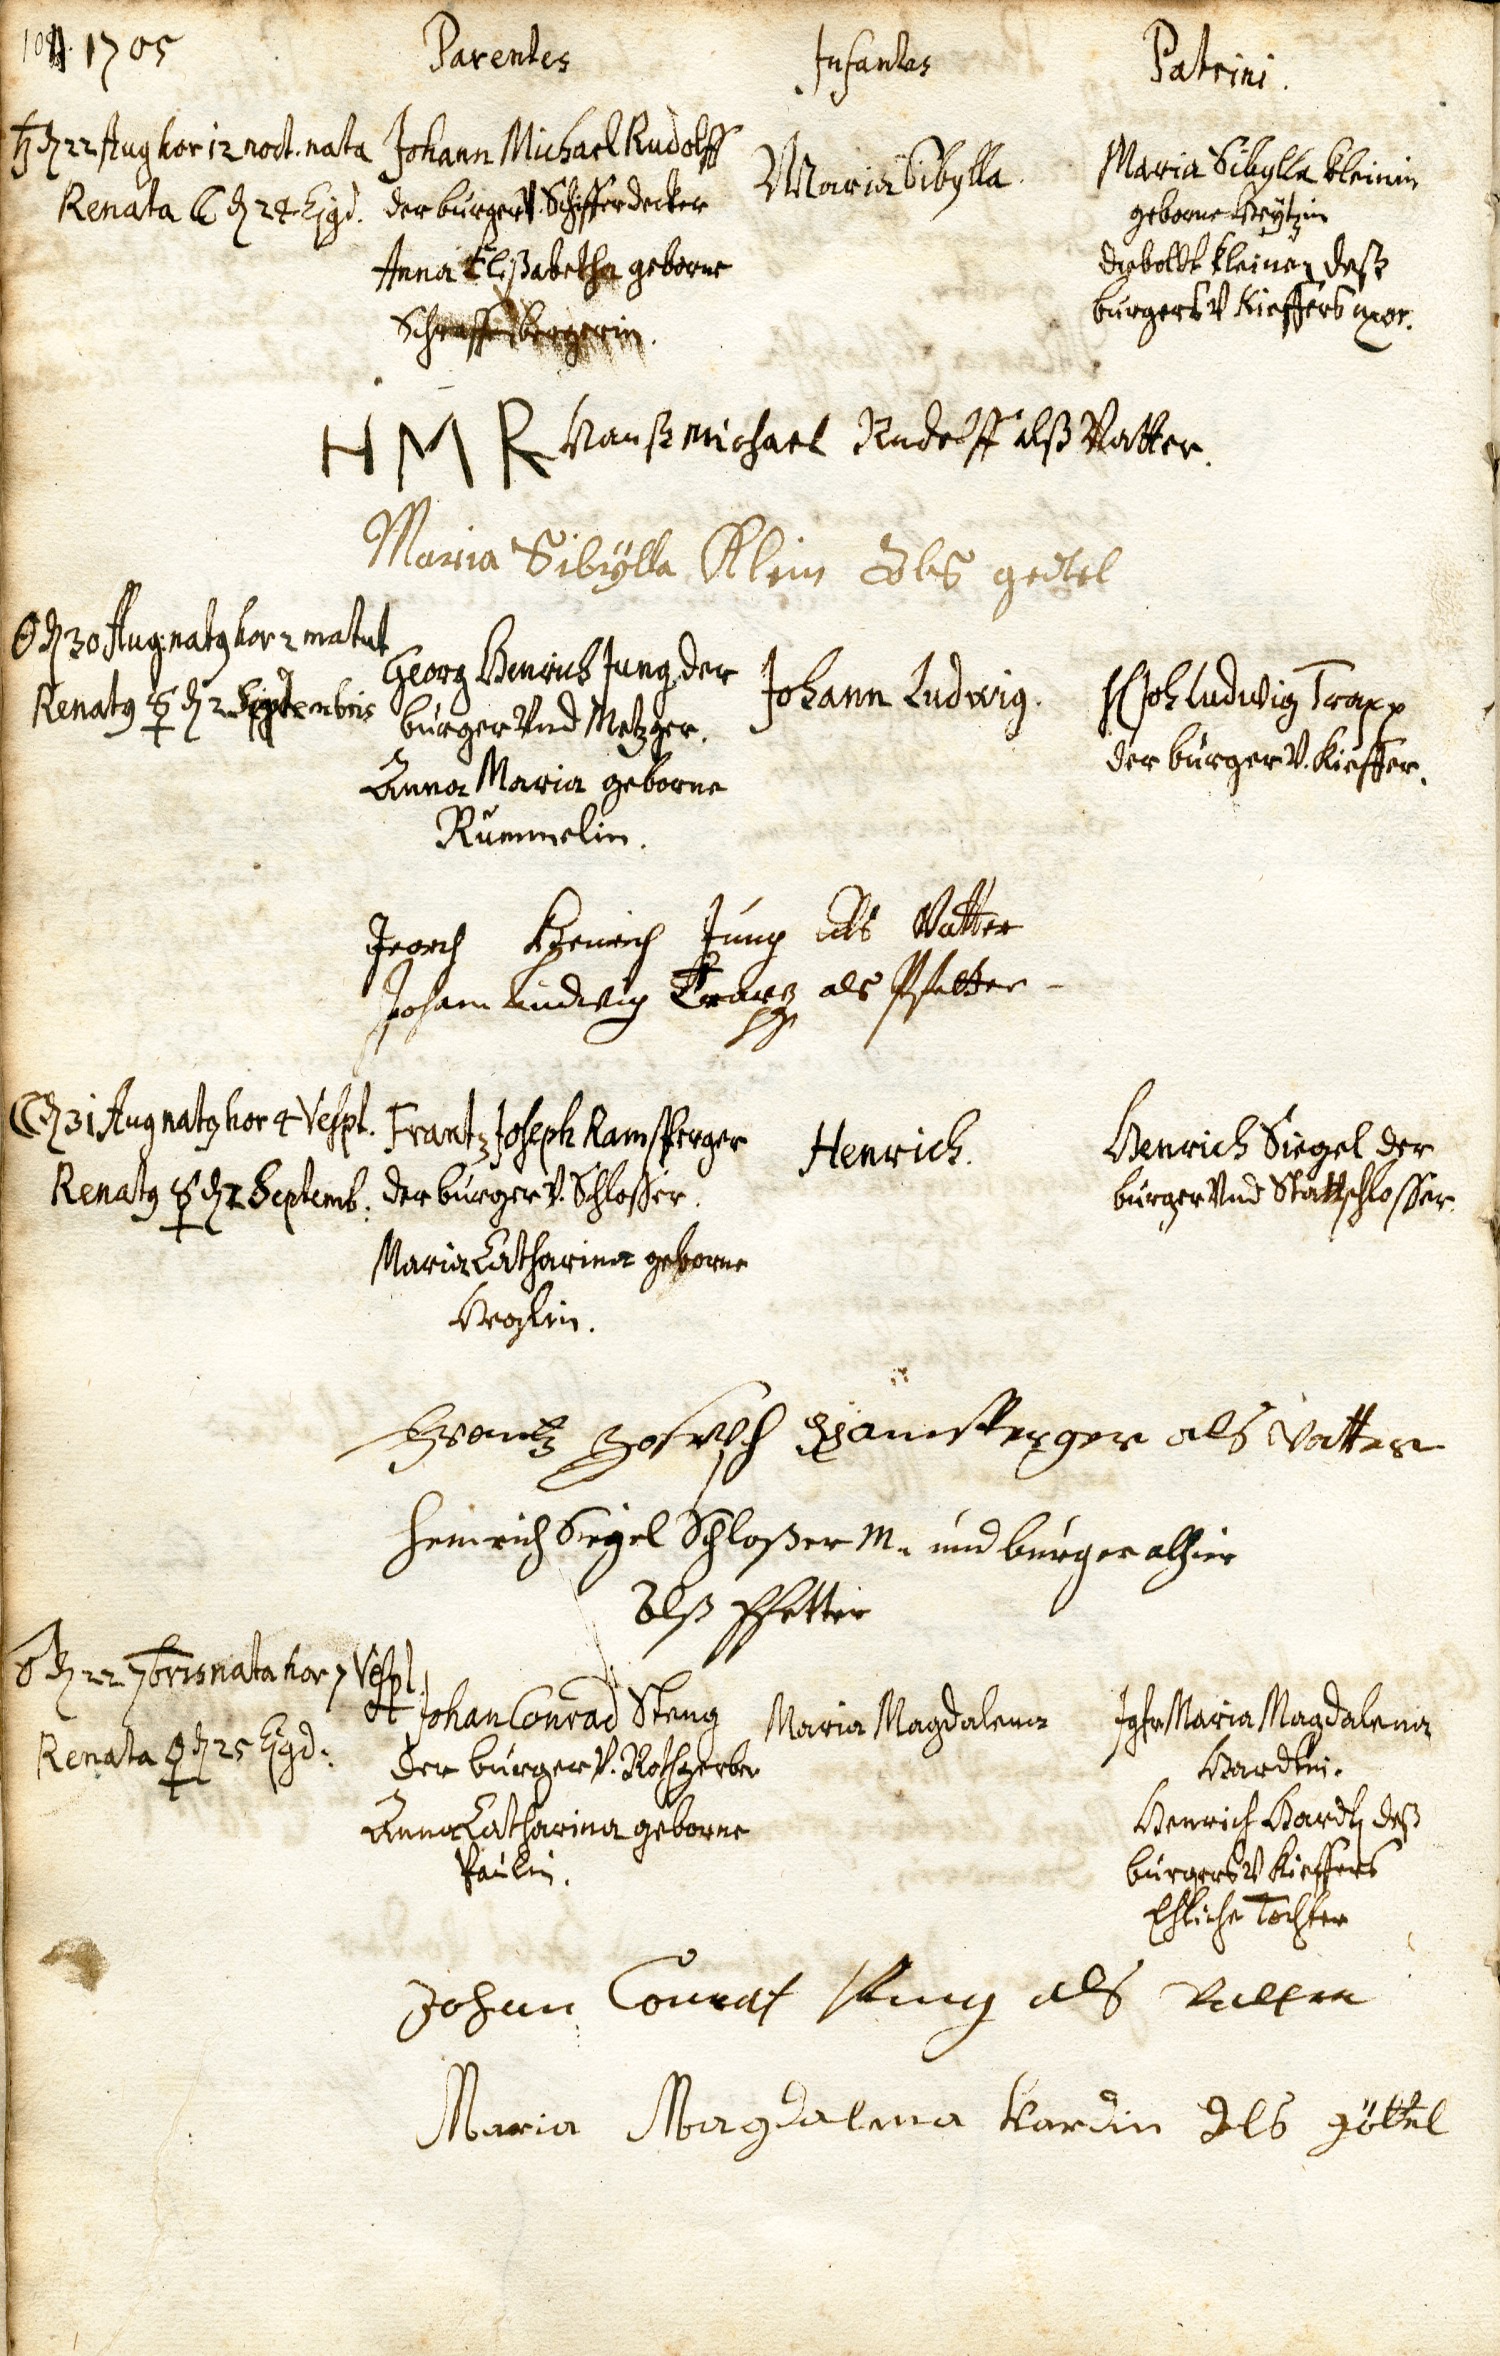 1705 Parentes Infantes Patrini.
♄ d 22 Aug hor 12 noct. nata
Renata ☾ d 24 Ejgd.
Johann Michael Rudolff
der burger V. Schifferdecker
Anna Elißabetha geborne
Maria Sibylla.
Maria Sibylla Kleinin
geborne
dieboldt Kleinen deß
burgers V Kieffers uxor.
H M R Hanß Michael Rudolff alß Vatter.
Maria Sibÿlla Klein Als gettel
☉ d 30 Aug. nat9 hor 2 matut
Renat9 ☿ d 2 Septembris
Georg Henrich Jung, der
burger Vnd Metzger.
Anna Maria geborne
Rummelin.
Johann Ludwig.
H Joh Ludwig Trapp
der burger V. Kieffer.
Jeorch Henrich Jung Als Vatter
Johann Ludwig als Pfetter
☾ d 31 Aug nat9 hor 4 Vespt.
Renat9 ☿ d 2 Septemb.
Frantz Joseph Ramsperger
der burger V. Schlosser.
Maria Catharina geborne
Henrich.
Henrich Siegel der
burger Vnd Stattschlosser.
Frantz Joseph Ramsperger als Vatter
Heinrich Siegel Schloßer M. und burger alhier
Alß Pfetter
♂ d 22 7bris nata hor 7 Vespt.
Renata ♀ d 25 Ejgd.
H Johan Conrad Steng
der burger V. Rothgerber
Anna Catharina geborne
Paulin.
Maria Magdalena
Jgfr Maria Magdalena
Hardtin.
Henrich Hardt deß
burgers V Kieffers
Ehliche Tochter
Johan Conrat Steng als Vatter
Maria Magdalena Hardin Als göttel